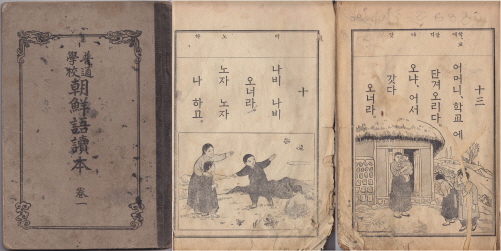 普通
學校
朝鮮語讀本
卷一
十
나비 나비
오너라.
노자 노자
나 하고.
十三
어머니, 학교 에
단겨오리다.
오냐, 어서
갓다
오너라.